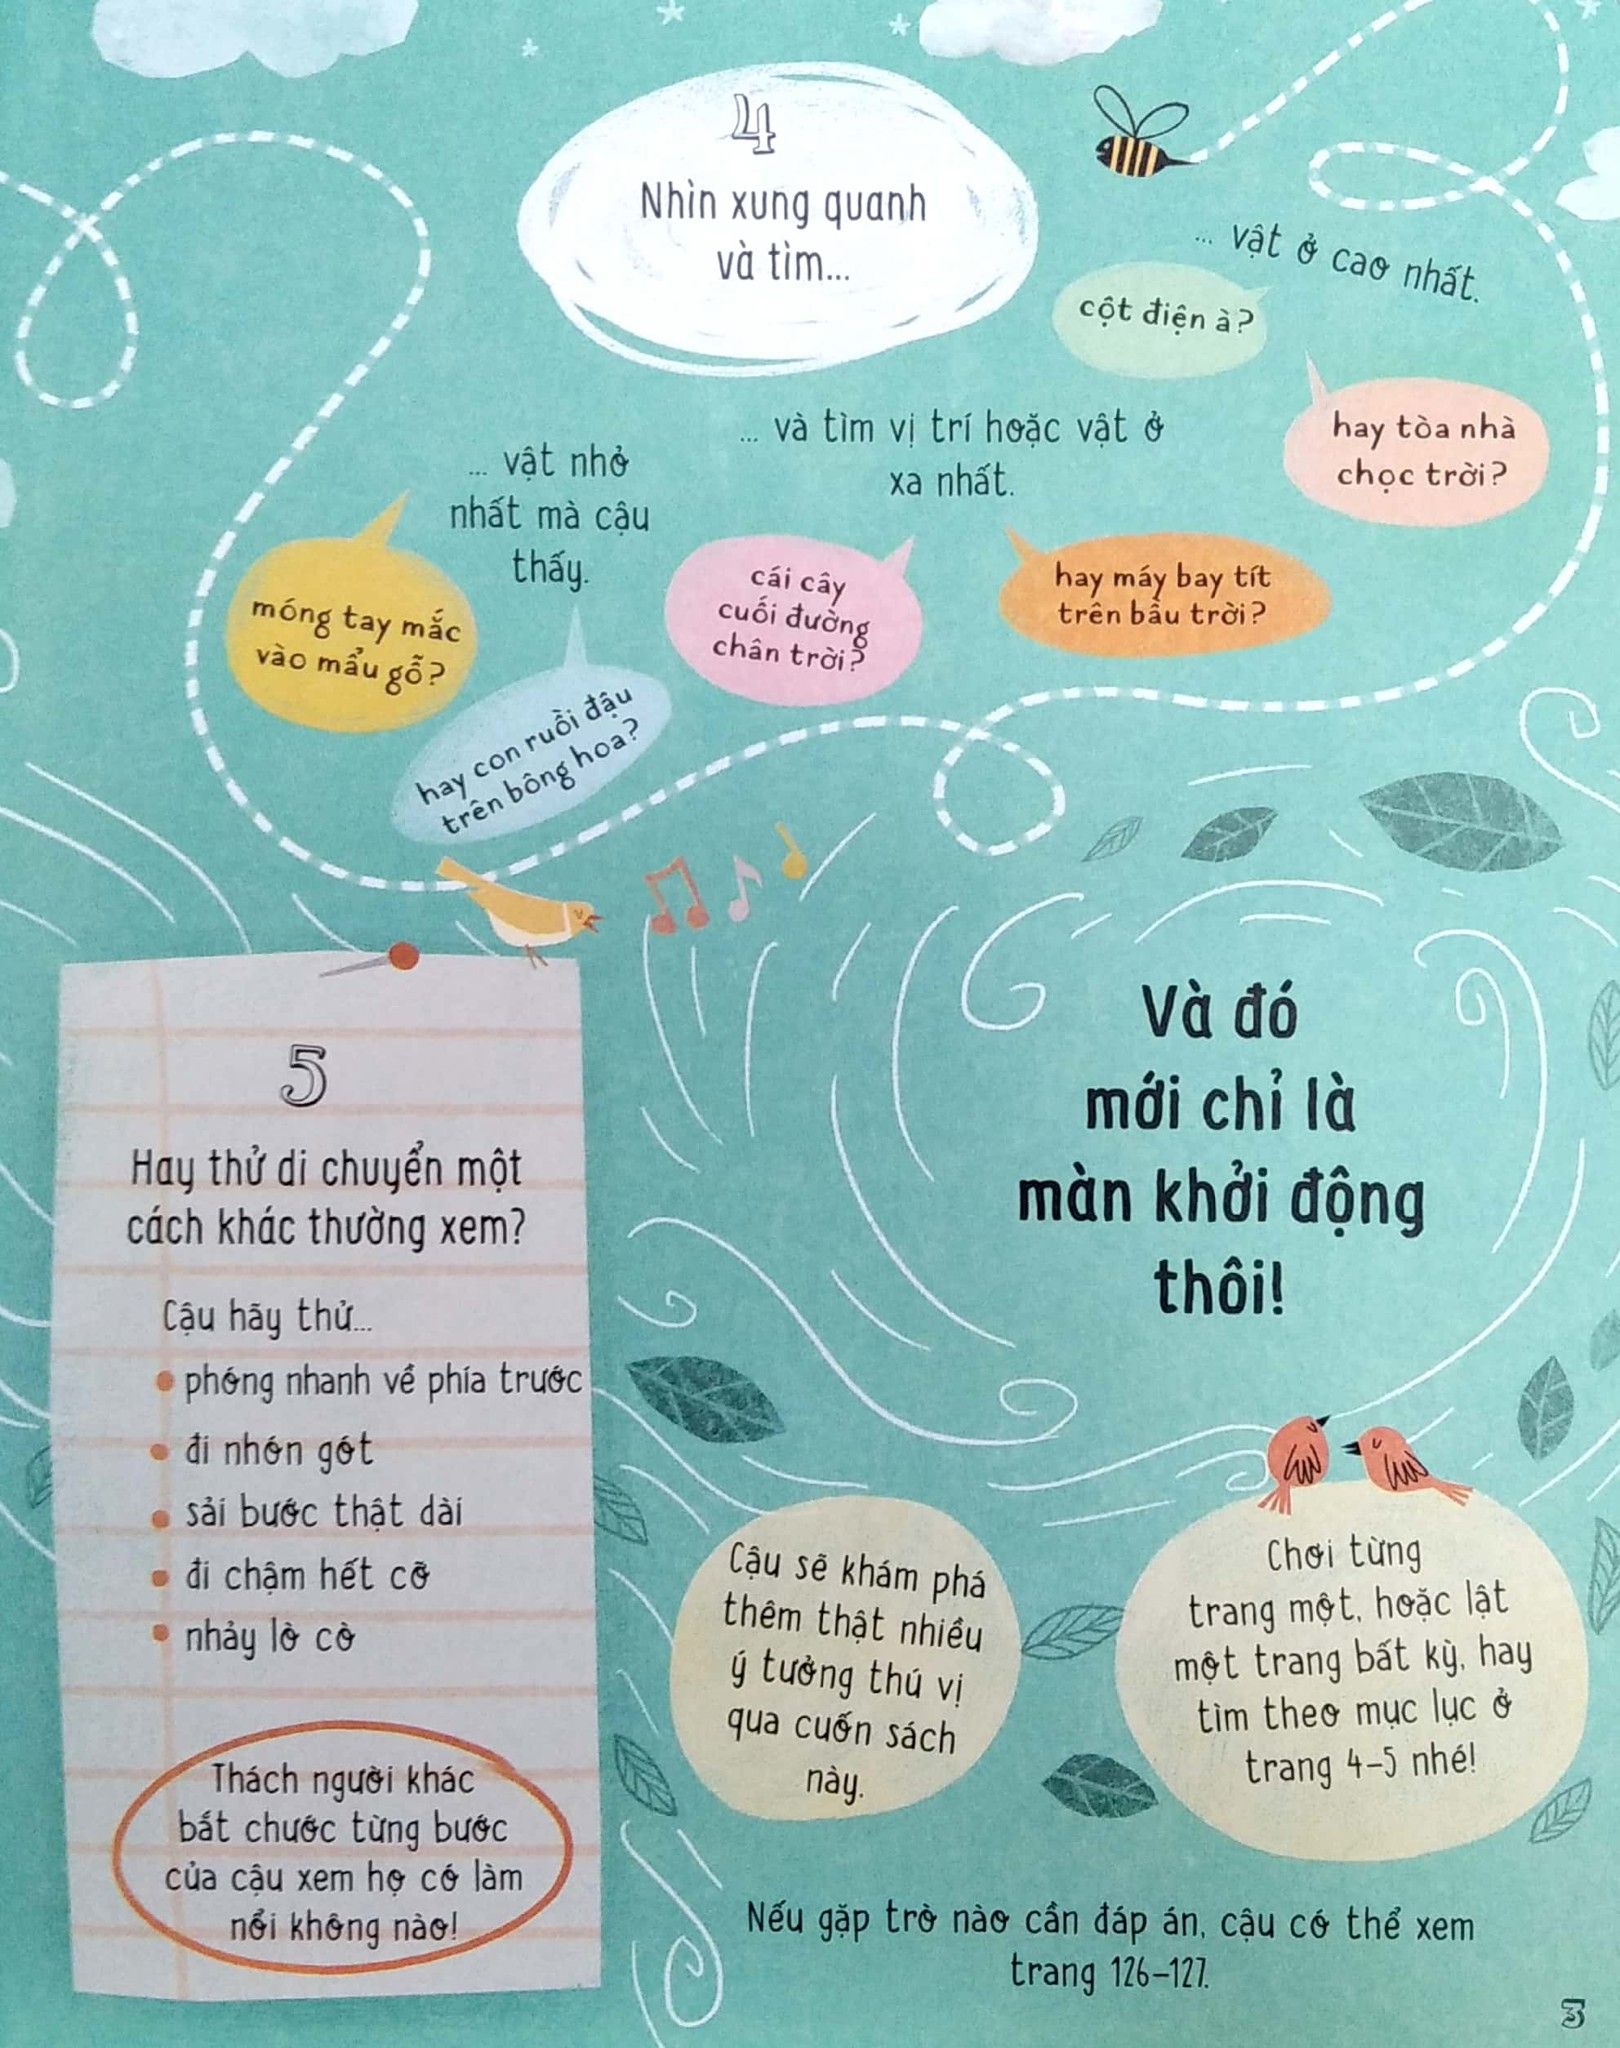 4
Nhìn xung quanh
và tìm...
... vật ở cao nhất.
cột điện à?
hay tòa nhà
chọc trời?
... và tìm vị trí hoặc vật ở
xa nhất.
cái cây
cuối đường
chân trời?
hay máy bay tít
trên bầu trời?
... vật nhỏ
nhất mà cậu
thấy.
móng tay mắc
vào mẩu gỗ?
hay con ruồi đậu
trên bông hoa?
5
Hay thử di chuyển một
cách khác thường xem?
Cậu hãy thử...
phóng nhanh về phía trước
đi nhón gót
sải bước thật dài
đi chậm hết cỡ
nhảy lò cò
Thách người khác
bắt chước từng bước
của cậu xem họ có làm
nổi không nào!
Và đó
mới chỉ là
màn khởi động
thôi!
Cậu sẽ khám phá
thêm thật nhiều
ý tưởng thú vị
qua cuốn sách
này.
Chơi từng
trang một, hoặc lật
một trang bất kỳ, hay
tìm theo mục lục ở
trang 4–5 nhé!
Nếu gặp trò nào cần đáp án, cậu có thể xem
trang 126–127.
3